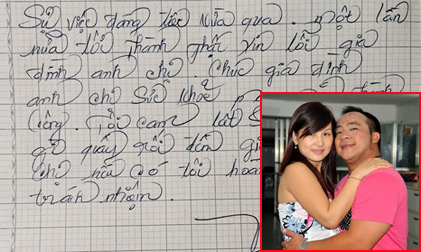 Sự việc đáng tiếc vừa qua. một lần
nữa tôi thành thật xin lỗi gia
đình anh chị. Chúc gia đình
anh chị sức khoẻ
Công. Tôi cam kết
gì quấy rối đến gi
Chị nếu có tôi hoàn
trách nhiệm.